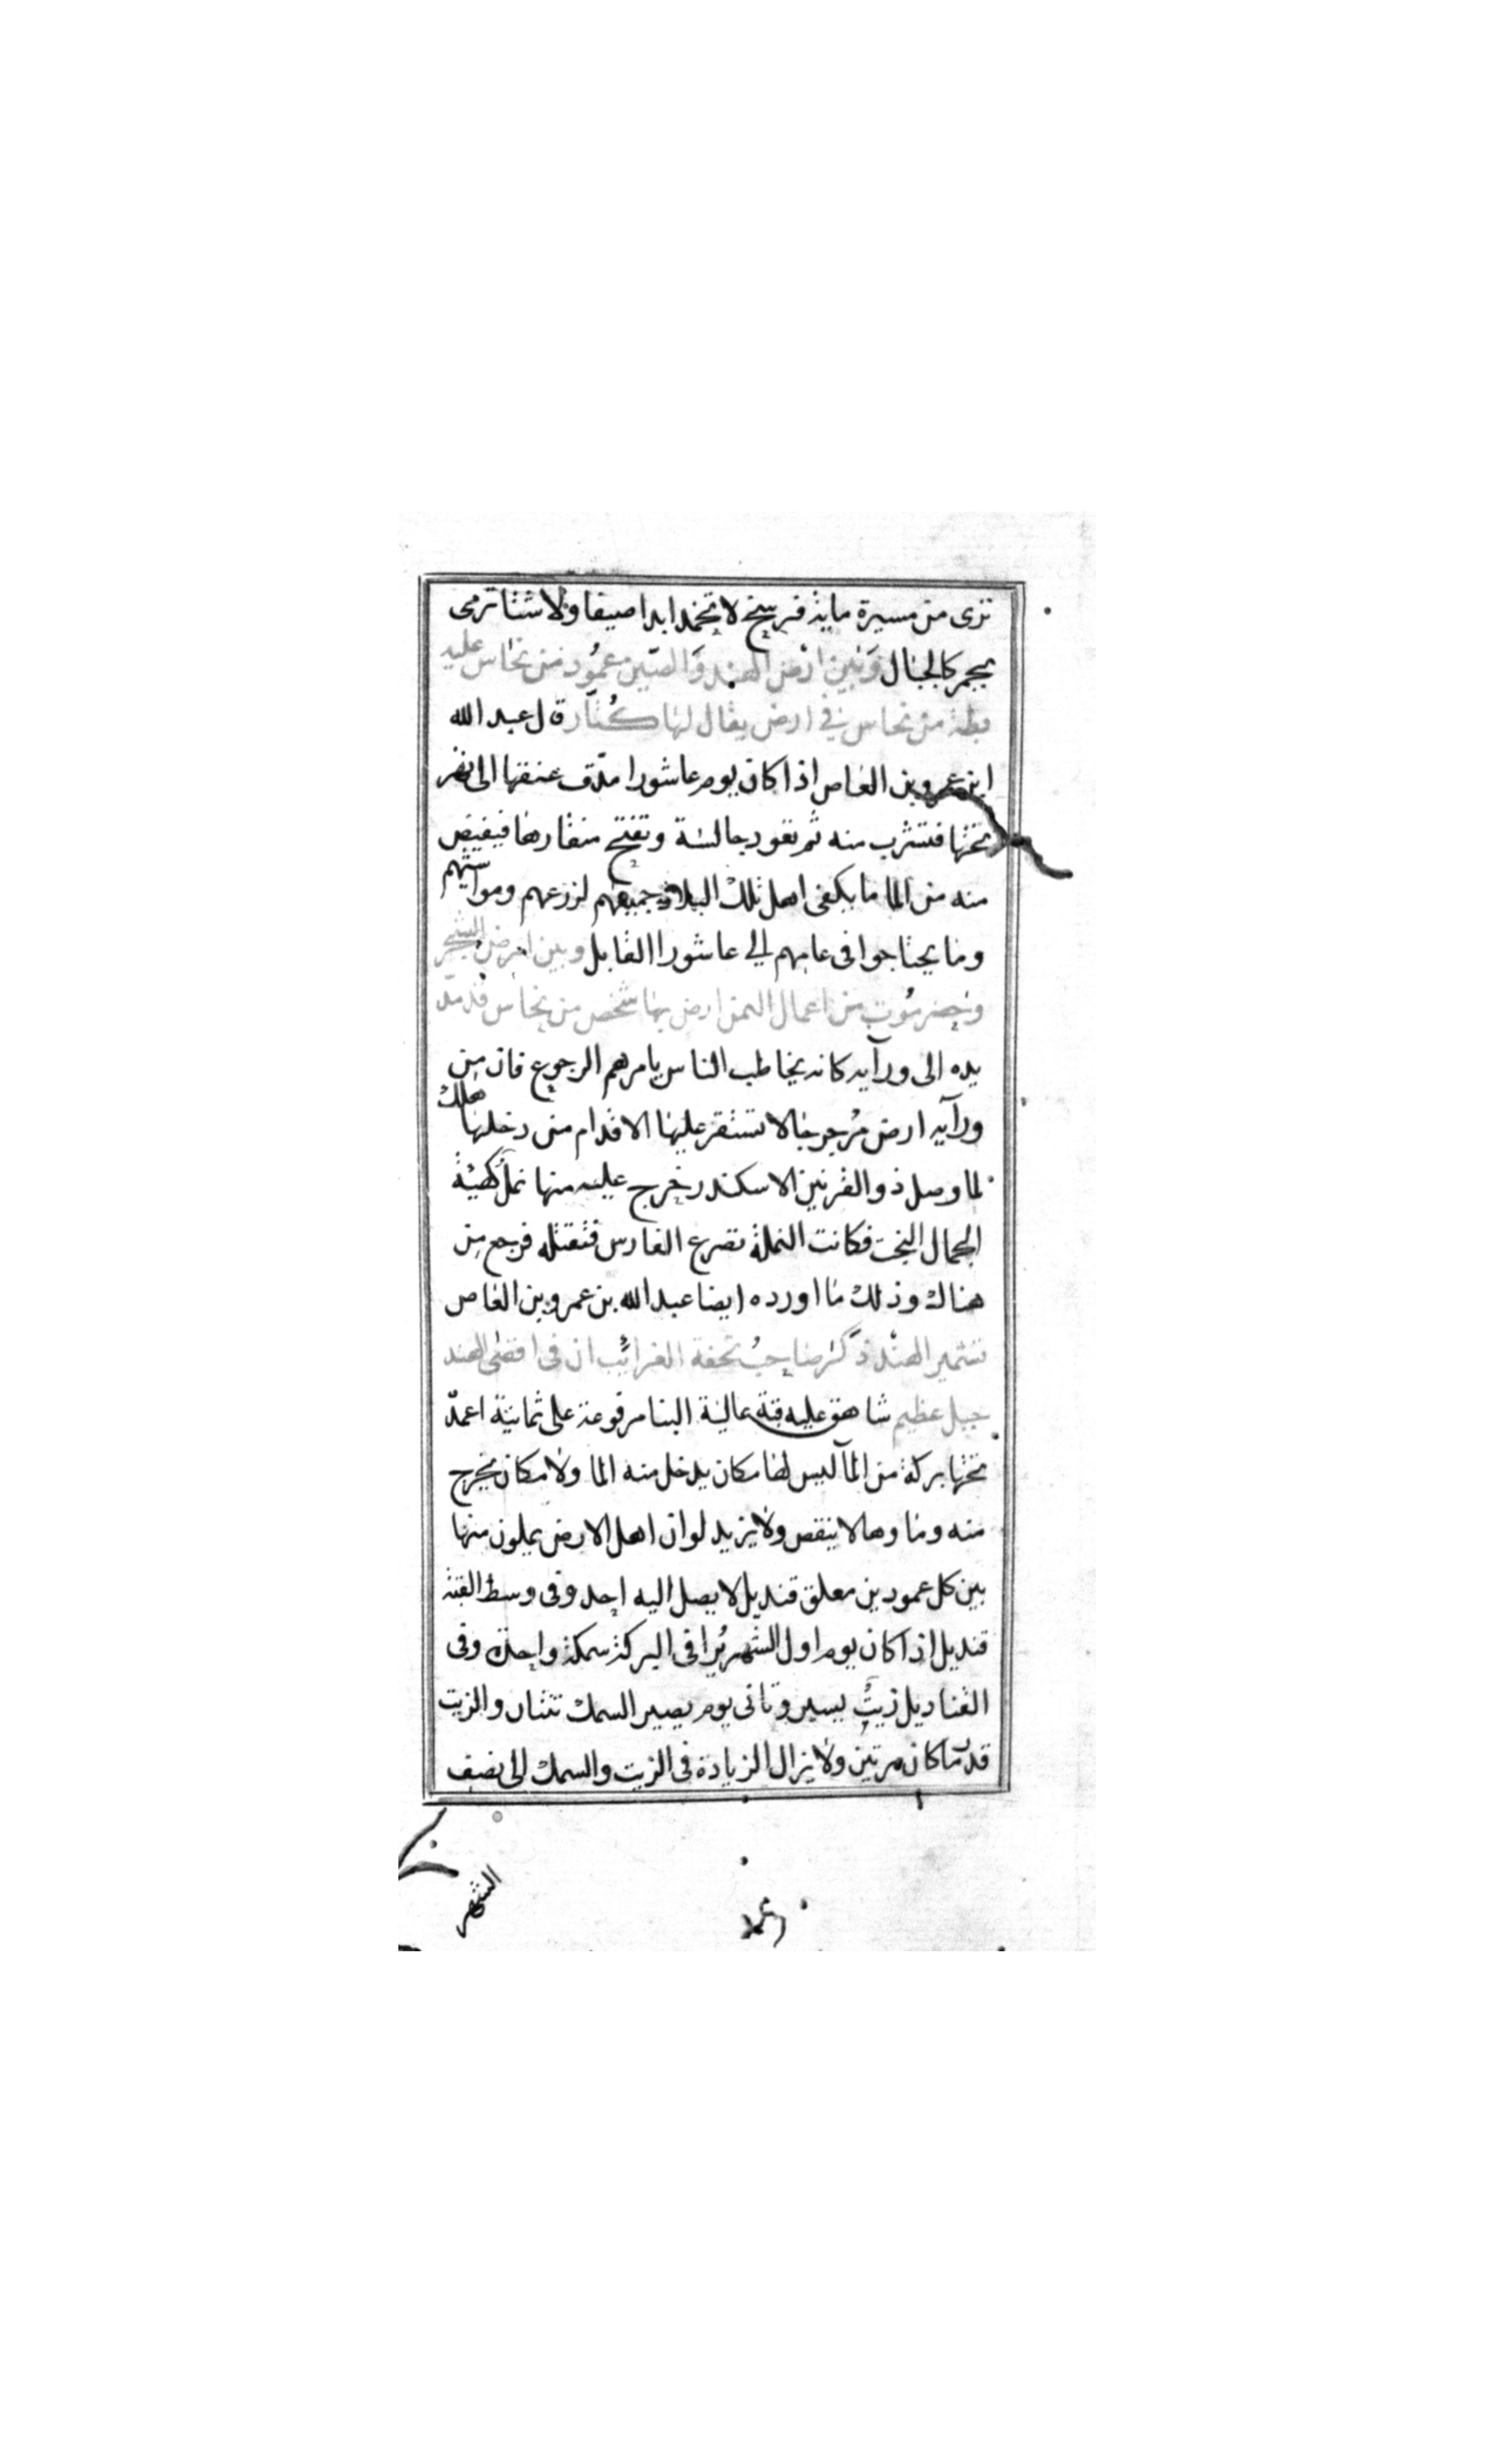 ترى من مسيرة ماية فرسخ لا تخمد ابدا صيفا ولا شتا ترمى
بجمر كالجبال وبين ارض الهند والصين عمود من نحاس عليه
بطة من نحاس في ارض يقال لها كنار قال عبد الله
ابن عمرو بن العاص اذا كان يوم عاشورا مدت عنقها الى نهر
تحتها فتشرب منه ثم تعود جالسة وتفتح منقارها فيفيض
منه من الما ما يكفى اهل تلك البلاد جميعهم لزرعهم ومواشيهم
وما يحتاجوا فى عامهم الي عاشورا القابل وبين ارض الشحر
وحضرموت من اعمال اليمن ارض بها شخص من نحاس قد مد
يده الى ورآيه كانه يخاطب الناس يامرهم الرجوع فان من
ورآيه ارض مرجرجا لا تستقر عليها الاقدام متى دخلها هلك
لما وصل ذو القرنين الاسكندر خرج عليه منها نمل كهيئة
الجمال البخت فكانت النملة تصرع الفارس فتقتله فرجع من
هناك وذلك ما اورده ايضا عبد الله بن عمرو بن العاص
الهند ذكر صاحب تحفة الغرائب ان فى اقصى الهند
جبل عظيم شاهق عليه قبة عالية البنا مرفوعة على ثمانية اعمد
تحتها بركة من المآ ليس لها مكان يدخل منه الما ولا مكان يخرج
منه وماوها لا ينقص ولا يزيد لو ان اهل الارض يملون منها
بين كل عمودين معلق قنديل لا يصل اليه احد وفى وسط القبة
قنديل اذا كان يوم اول الشهر يرا فى البركة سمكة واحدة وفى
القناديل زيت يسير وثانى يوم يصير السمك تنتان والزيت
قد ما كان مرتين ولا يزال الزيادة فى الزيت والسمك الى نصف
الشهر